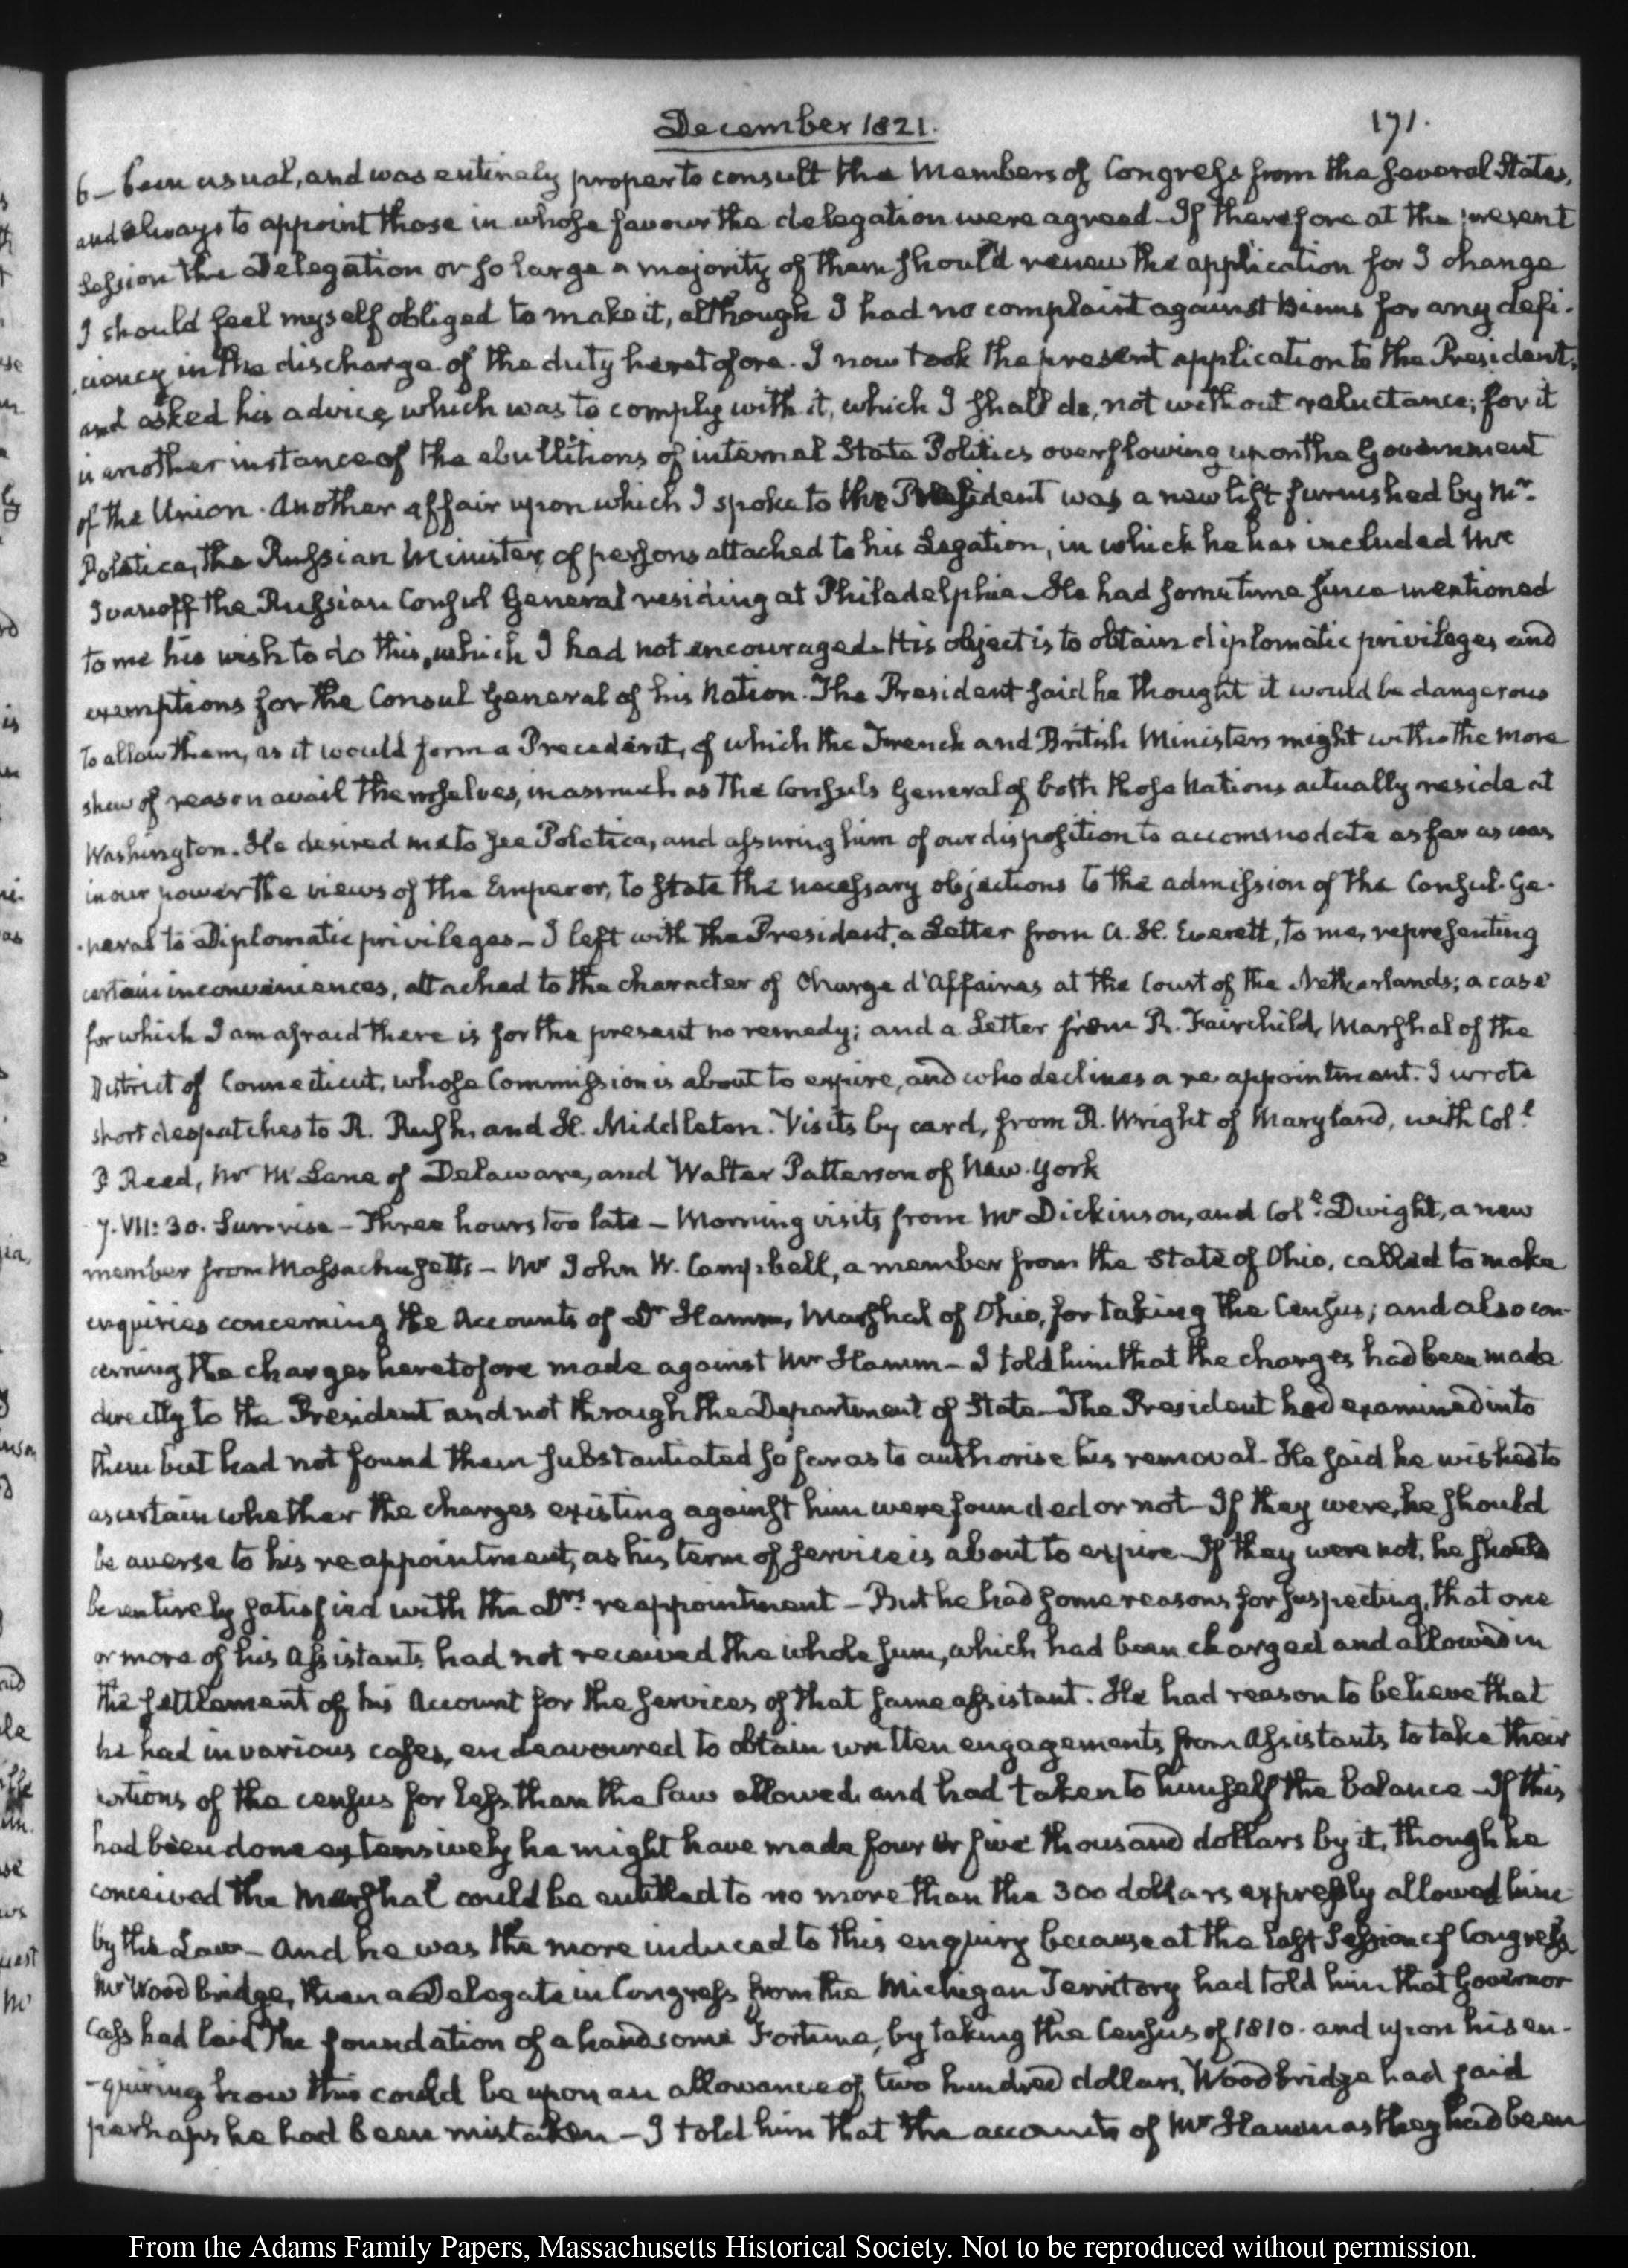 December 1821.
171.
6 — been usual, and was entirely proper to consult the Members of Congress from the several States,
and always to appoint those in whose favour the delegation were agreed — If therefore at the present
Session the Delegation or so large a majority of them should renew the application for I change
I should feel myself obliged to make it, although I had no complaint against Binns for any defi-
-ciency in the discharge of the duty heretofore. I now took the present application to the President,
and asked his advice, which was to comply with it, which I shall do, not without reluctance; for it
is another instance of the ebullitions of internal State Politics overflowing upon the Government
of the Union. Another affair upon which I spoke to the President was a new list furnished by Mr.
Poletica, the Russian Minister, of persons attached to his Legation, in which he has included Mr
Ivanoff the Russian Consul General residing at Philadelphia. He had sometime since mentioned
to me his wish to do this, which I had not encouraged. His object is to obtain diplomatic privileges and
exemptions for the Consul General of his Nation. The President said he thought it would be dangerous
to allow them, as it would form a Precedent, of which the French and British Ministers might with the more
shew of reason avail themselves, inasmuch as the Consuls General of both those Nations actually reside at
Washington. He desired me to see Poletica, and assuring him of our disposition to accommodate as far as was
in our power the views of the Emperor, to state the necessary objections to the admission of the Consul-Ge-
-neral to Diplomatic privileges — I left with the President, a Letter from A. H. Everett, to me, representing
certain inconveniences, attached to the character of Charge d'Affaires at the Court of the Netherlands; a case
for which I am afraid there is for the present no remedy; and a Letter from R. Fairchild, Marshal of the
District of Connecticut, whose Commission is about to expire, and who declines a re-appointment. I wrote
short despatches to R. Rush, and H. Middleton. Visits by card, from R. Wright of Maryland, with Coll
P Reed, Mr McLane of Delaware, and Walter Patterson of New-York
7. VII: 30. Sunrise — Three hours too late — Morning visits from Mr Dickinson, and Coll. Dwight, a new
member from Massachusetts — Mr John W. Campbell, a member from the State of Ohio, called to make
enquiries concerning the Accounts of Dr Hamm, Marshal of Ohio, for taking the Census; and also con-
cerning the charges heretofore made against Mr Hamm — I told him that the charges had been made
directly to the President and not through the Department of State — The President had examined into
them but had not found them substantiated so far as to authorise his removal. He said he wished to
ascertain whether the charges existing against him were founded or not — If they were, he should
be averse to his reappointment, as his term of service is about to expire — If they were not, he should
be entirely satisfied with the Drs. reappointment — But he had some reasons for suspecting, that one
or more of his Assistants had not received the whole sum, which had been charged and allowed in
the settlement of his Account for the services of that same assistant. He had reason to believe that
he had in various cases, endeavoured to obtain written engagements from Assistants to take their
portions of the census for less than the Law allowed, and had taken to himself the balance — If this
had been done extensively he might have made four or five thousand dollars by it, though he
conceived the Marshal could be entitled to no more than the 300 dollars expressly allowed him
by the Law — And he was the more induced to this enquiry because at the last Session of Congress
Mr Woodbridge, then a Delegate in Congress from the Michigan Territory had told him that Governor
Cass had laid the foundation of a handsome Fortune, by taking the Census of 1810. and upon his en-
-quiring how this could be upon an allowance of two hundred dollars, Woodbridge had said
perhaps he had been mistaken — I told him that the accounts of Mr Hamm as they had been
From the Adams Family Papers, Massachusetts Historical Society. Not to be reproduced without permission.